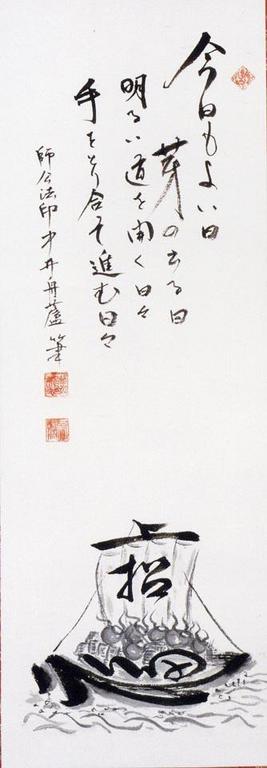 今日もよい日
芽の出る日
明るい道を開く日々
手をとり合って進む日々
師公法印 中井舟蘆 筆
招